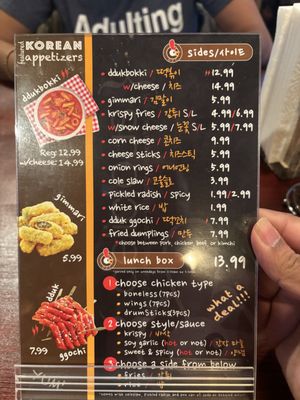 Adulting
featured
KOREAN
appetizers
ddukbokki
Reg: 12.99
w/cheese: 14.99
gimmari
5.99
dduk
ggochi
7.99
sides/사이드
ddukbokki / 떡볶이 12.99
w/cheese / 치즈 14.99
gimmari / 김말이 5.99
krispy fries / 감튀 S/L 4.99/6.99
w/snow cheese / 눈꽃 S/L 5.99/7.99
corn cheese / 콘치즈 9.99
cheese sticks / 치즈스틱 5.99
onion rings / 어니언링 5.99
cole slaw / 코울슬로 3.99
pickled radish / 치킨무 1.99/2.99
white rice / 밥 1.99
dduk ggochi / 떡꼬치 7.99
fried dumplings / 만두 7.99
*choose between pork, chicken, beef or kimchi
lunch box 13.99
1 choose chicken type
boneless (7PCS)
wings (7PCS)
drumsticks(3PCS)
2 choose style/sauce
krispy / 바삭
soy garlic (hot or not) / 간장 마늘
sweet & spicy (hot or not) / 양념
3 choose a side from below
fries / 감튀
rice / 밥
what a
deal!!!